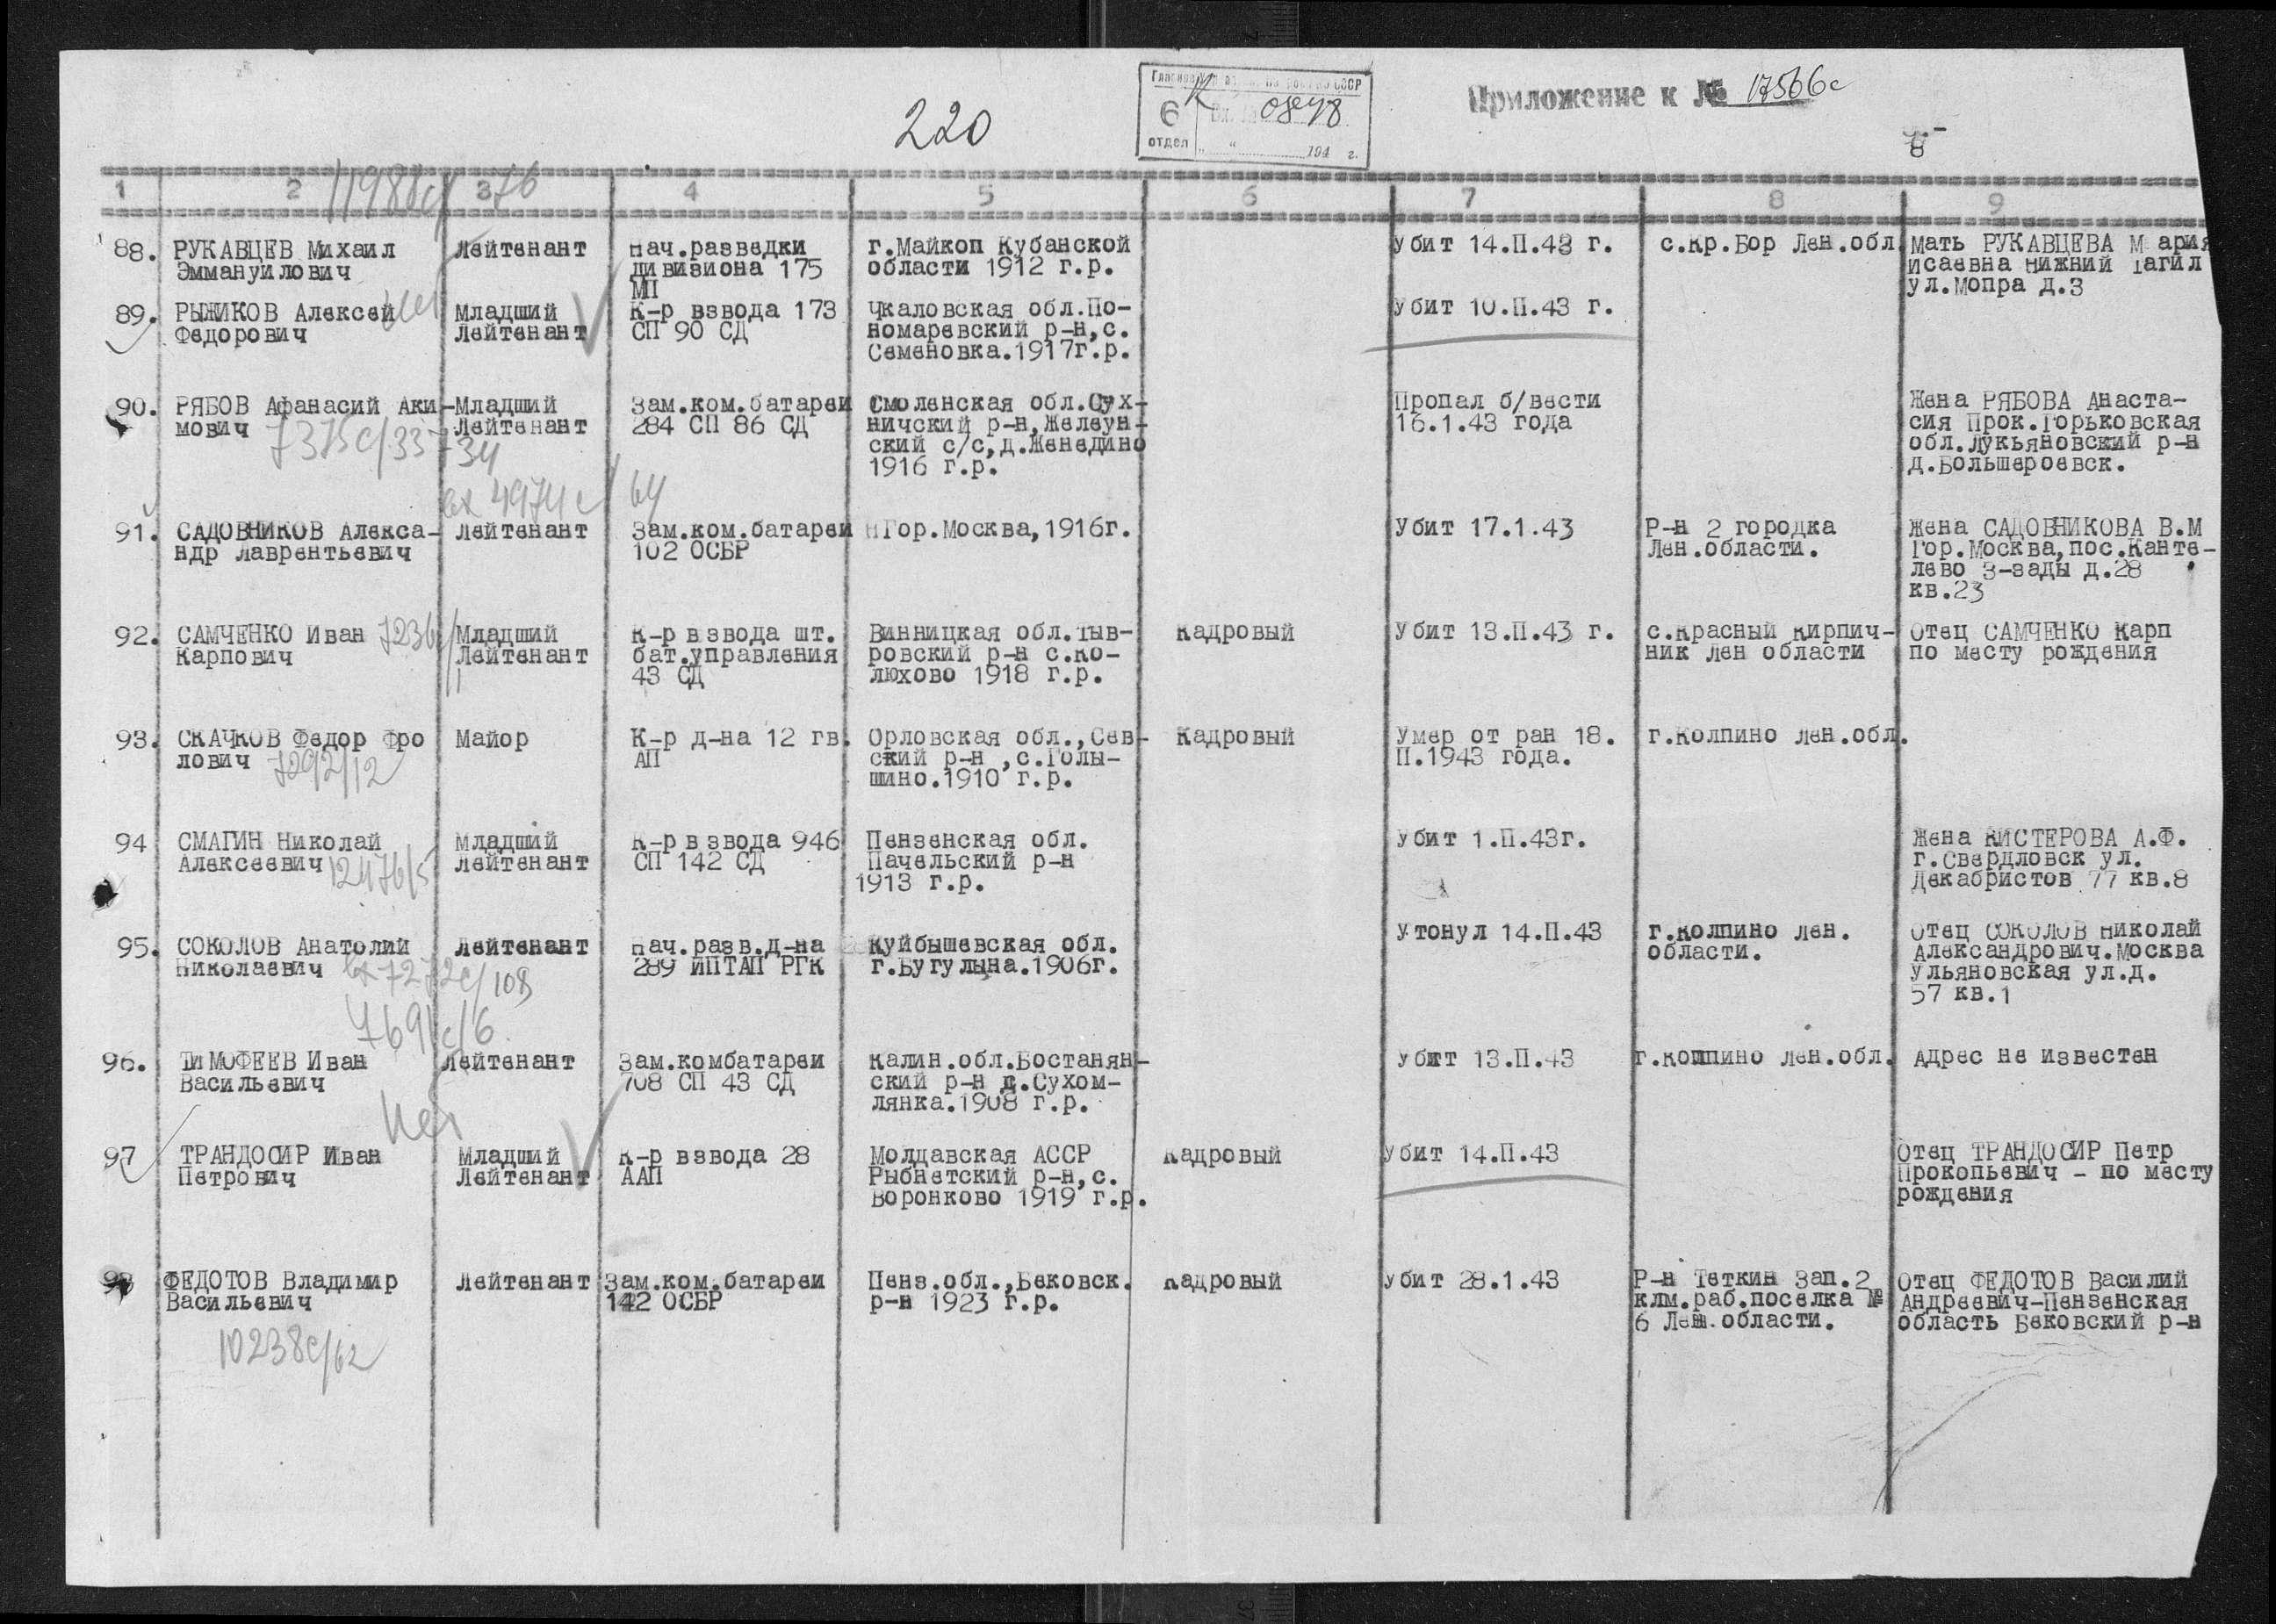 220
6
отдел
0848
194 г.
Приложение к № 17566с
8
1 2 3 4 5 6 7 8 9
11988с/376
88. РУКАВЦЕВ Михаил Эммануилович
Лейтенант
Нач.разведки
дивизиона 175
МП
г.Майкоп Кубанской
области 1912 г.р.
Убит 14.П.43 г.
с.Кр.Бор Лен.обл
Мать РУКАВЦЕВА Мария
Исаевна Нижний Тагил
ул.Мопра д.3
89. РЫЖИКОВ Алексей
Федорович
Младший
Лейтенант
К-р взвода 173
СП 90 СД
Чкаловская обл.По-
номаревский р-н,с.
Семеновка.1917г.р.
Убит 10.П.43 г.
90. РЯБОВ Афанасий Аки-
мович
7375с/33734
Младший
Лейтенант
Зам.ком.батареи
284 СП 86 СД
Смоленская обл.Сух-
ничский р-н,Желеун-
ский с/с,д.Женедино
1916 г.р.
Пропал б/вести
16.1.43 года
Жена РЯБОВА Анаста-
сия Прок.Горьковская
обл.Лукьяновский р-н
д.Большероевск.
вх 4974с/64
91. САДОВНИКОВ Алекса-
ндр Лаврентьевич
Лейтенант
Зам.ком.батареи
102 ОСБР
Гор.Москва,1916г.
Убит 17.1.43
Р-н 2 городка
Лен.области.
Жена САДОВНИКОВА В.М
Гор.Москва,пос.Канте-
лево 3-зады д.28
кв.23
92. САМЧЕНКО Иван
Карпович
Младший
Лейтенант
К-р взвода шт.
бат.управления
43 СД
Винницкая обл.Тыв-
ровский р-н с.Ко-
люхово 1918 г.р.
Кадровый
Убит 13.П.43 г.
с.Красный Кирпич-
ник Лен области
Отец САМЧЕНКО Карп
по месту рождения
93. СКАЧКОВ Федор Фро
лович
7292/12
Майор
К-р д-на 12 гв.
АП
Орловская обл.,Сев-
ский р-н ,с.Голы-
шино.1910 г.р.
Кадровый
Умер от ран 18.
П.1943 года.
г.Колпино Лен.обл.
94 СМАГИН Николай
Алексеевич 12476/5
Младший
Лейтенант
К-р взвода 946
СП 142 СД
Пензенская обл.
Пачельский р-н
1913 г.р.
Убит 1.П.43г.
Жена КИСТЕРОВА А.Ф.
г.Свердловск ул.
Декабристов 77 кв.8
95. СОКОЛОВ Анатолий
Николаевич
вх 7272с/108
7691с/6
Лейтенант
Нач.разв.д-на
289 ИПТАП РГК
Куйбышевская обл.
г.Бугулына.1906г.
Утонул 14.П.43
г.Колпино Лен.
области.
Отец СОКОЛОВ Николай
Александрович.Москва
Ульяновская ул.д.
57 кв.1
96. ТИМОФЕЕВ Иван
Васильевич
Лейтенант
Зам.комбатареи
708 СП 43 СД
Калин.обл.Востанян-
ский р-н д.Сухом-
лянка.1908 г.р.
Убит 13.П.43
г.Колпино Лен.обл.
Адрес не известен
нет
97 ТРАНДОСИР Иван
Петрович
Младший
Лейтенант
К-р взвода 28
ААП
Молдавская АССР
Рыбнетский р-н,с.
Воронково 1919 г.р.
Кадровый
Убит 14.П.43
Отец ТРАНДОСИР Петр
Прокопьевич - по месту
рождения
98 ФЕДОТОВ Владимир
Васильевич
10238с/62
Лейтенант
Зам.ком.батареи
142 ОСБР
Пенз.обл.,Бековск.
р-н 1923 г.р.
Кадровый
Убит 28.1.43
Р-н Теткин Зап.2
клм.раб.поселка №
6 Лен.области.
Отец ФЕДОТОВ Василий
Андреевич-Пензенская
область Бековский р-н